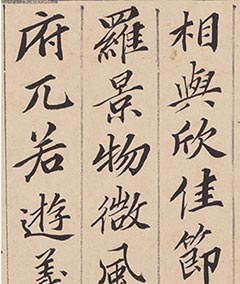 相與欣佳節
羅景物微風
府兀若遊羲